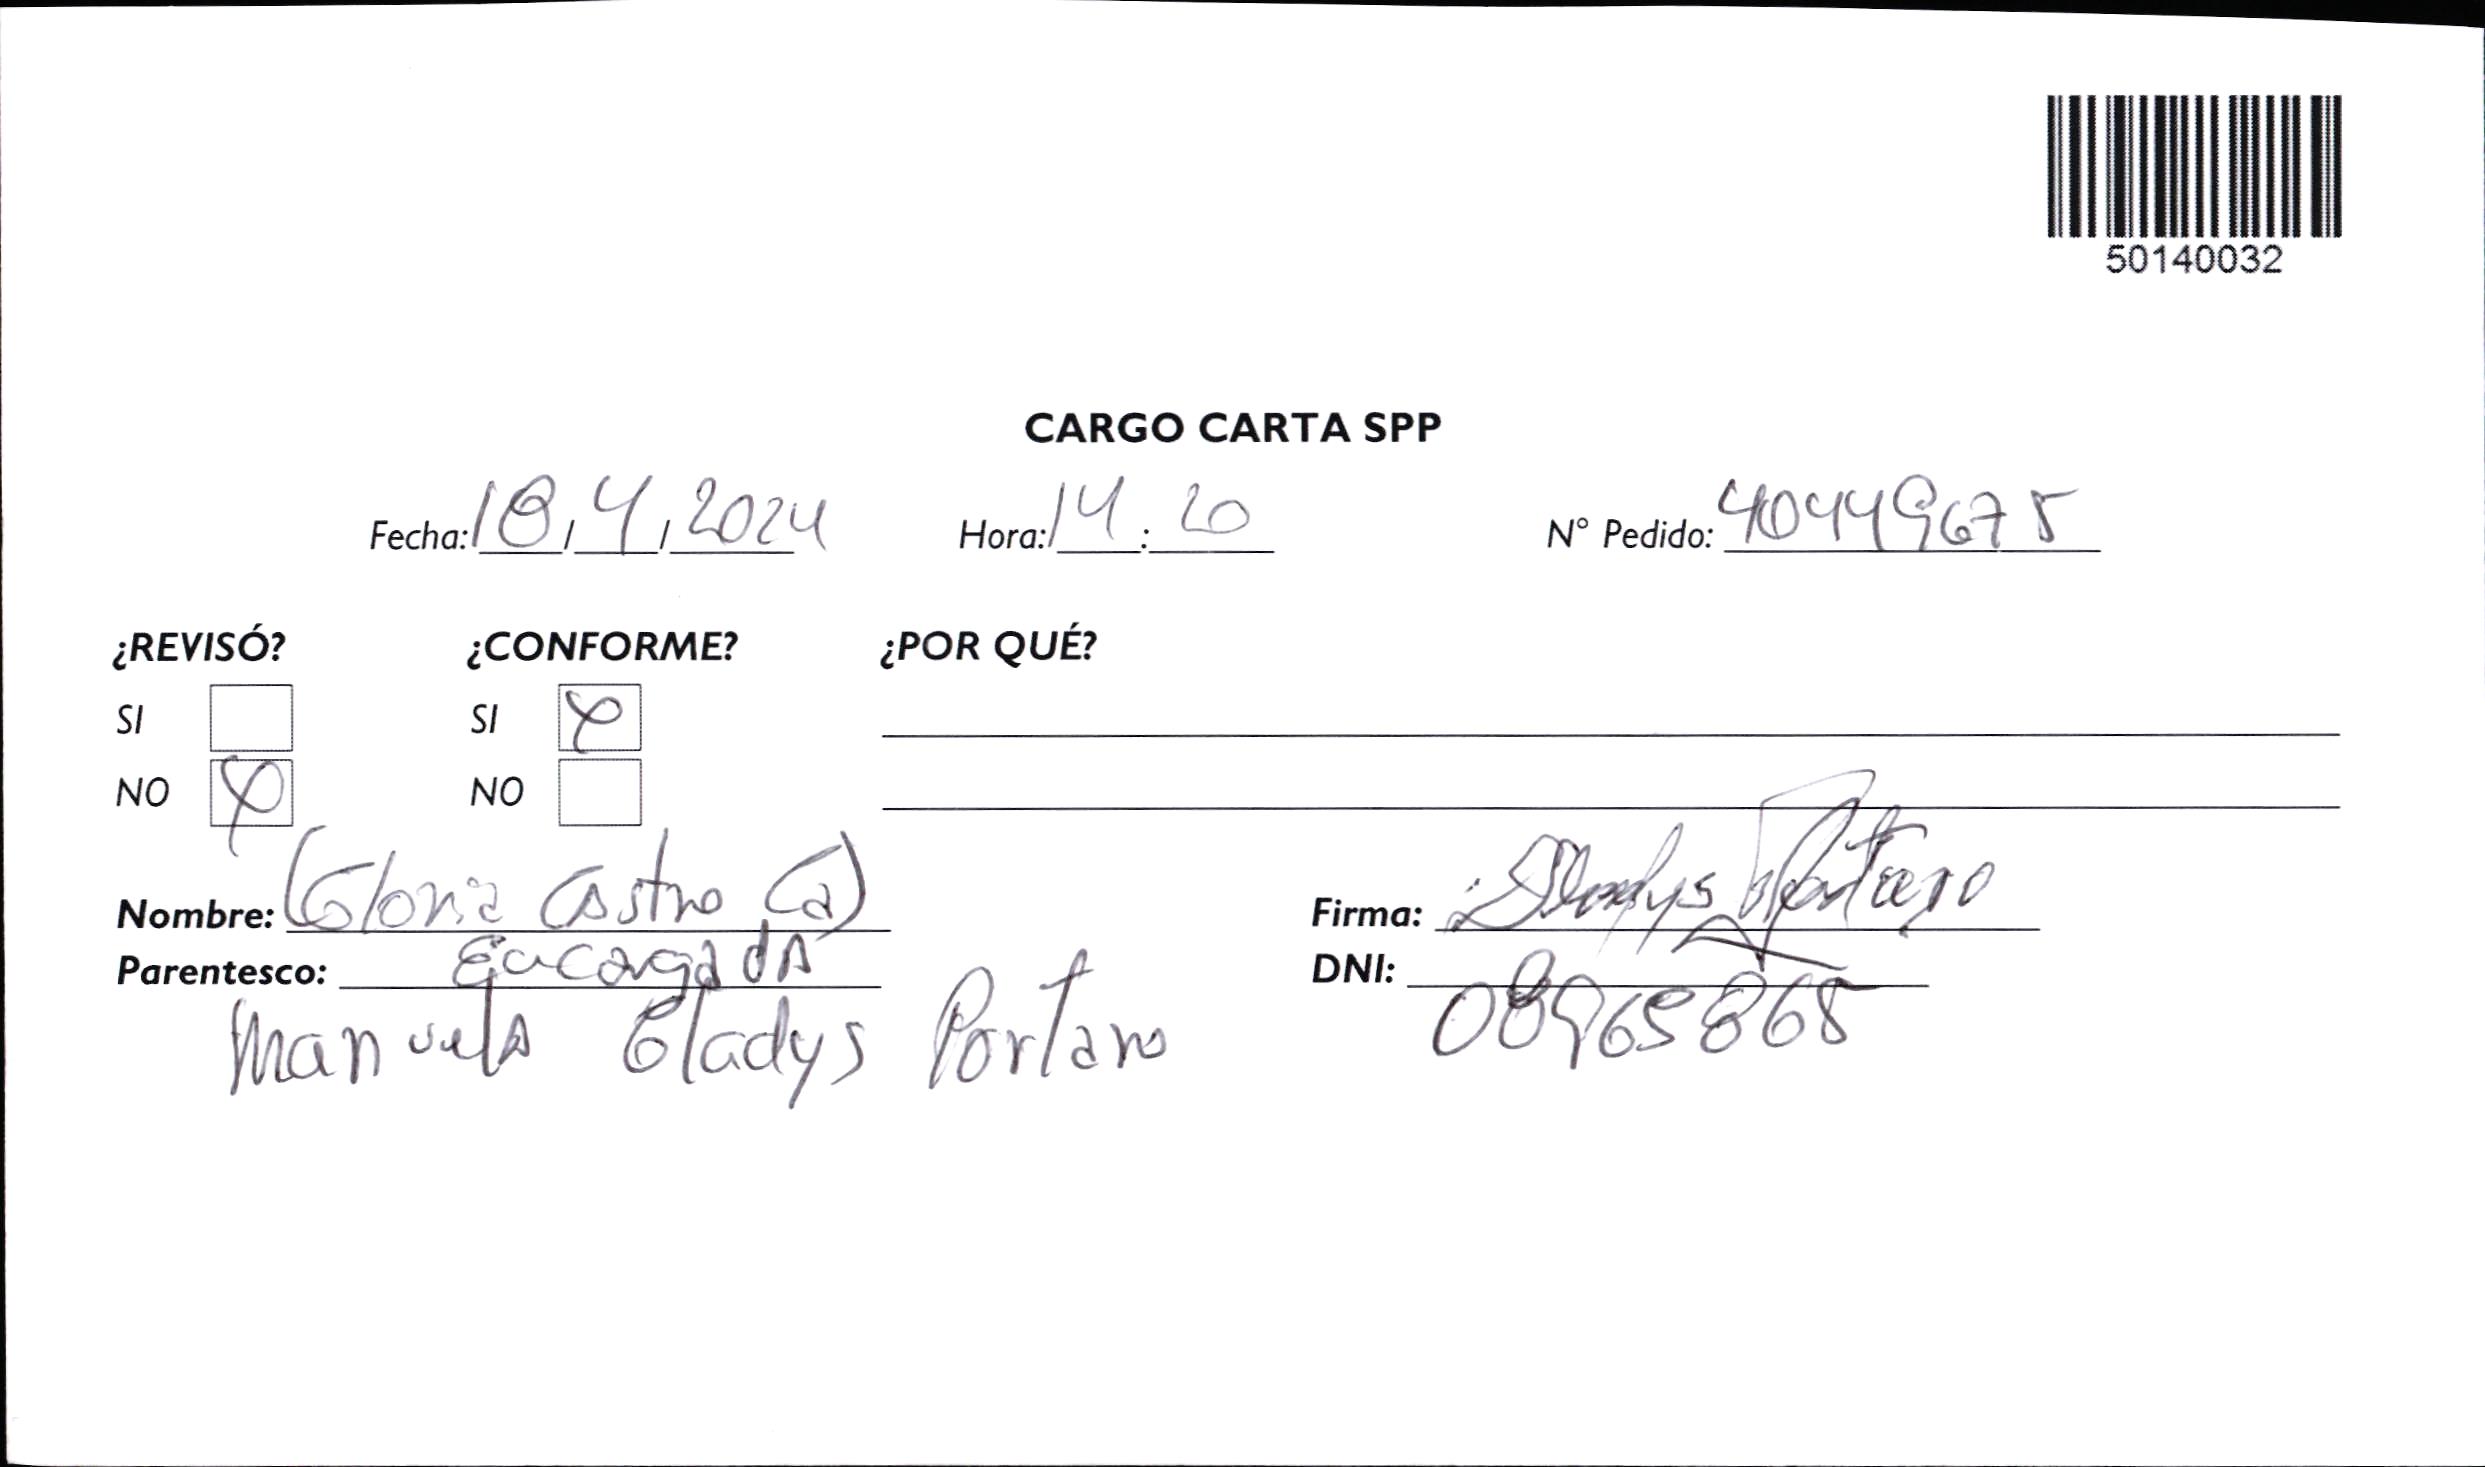 50140032
CARGO CARTA SPP
Fecha: 18/4/2024 Hora: 14:20 N° Pedido: 40449675
¿REVISÓ? ¿CONFORME? ¿POR QUÉ?
SI SI X
NO X NO
Nombre: (Gloria Castro Ca) Firma: Gladys Portaro
Parentesco: Encargada DNI:
Manuela Gladys Portaro 08965865